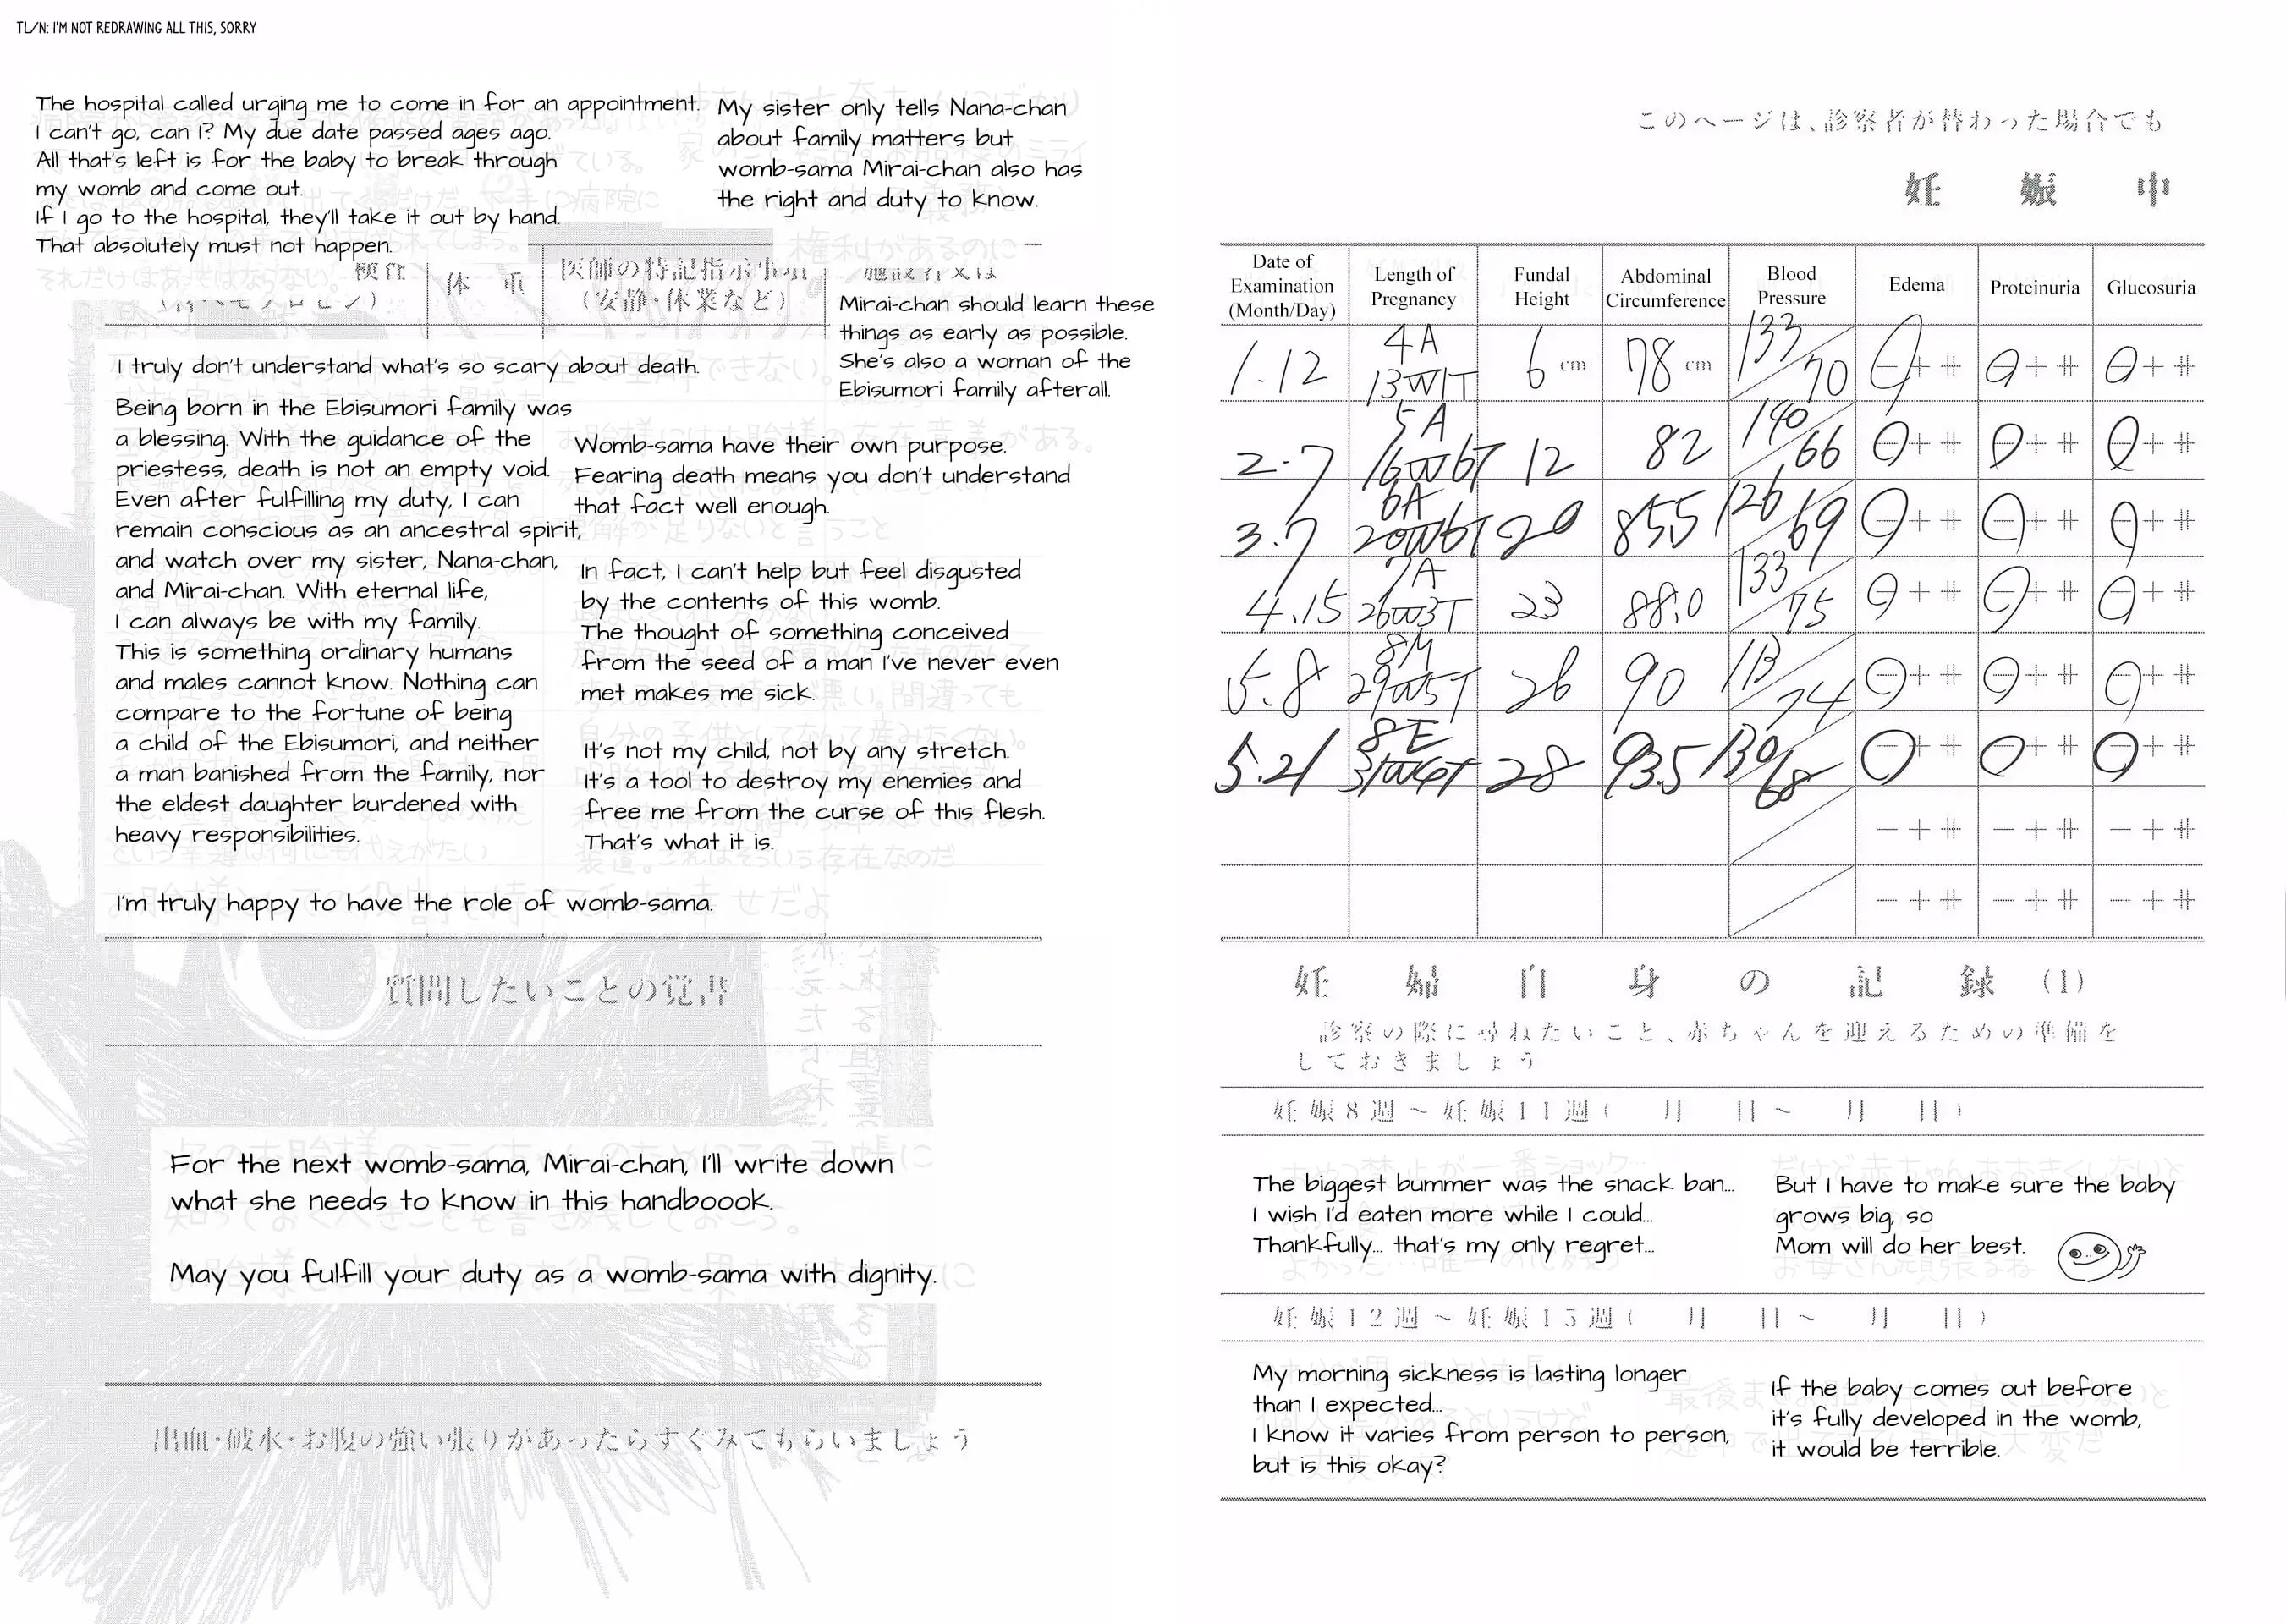 TL/N: I'M NOT REDRAWING ALL THIS, SORRY
The hospital called urging me to come in for an appointment.
I can't go, can I? My due date passed ages ago.
All that's left is for the baby to break through
my womb and come out.
If I go to the hospital, they'll take it out by hand.
That absolutely must not happen.
My sister only tells Nana-chan
about family matters but
womb-sama Mirai-chan also has
the right and duty to know.
体 重
医師の特記指示事項
(安静・休業など)
Mirai-chan should learn these
things as early as possible.
She's also a woman of the
Ebisumori family afterall.
I truly don't understand what's so scary about death.
Being born in the Ebisumori family was
a blessing. With the guidance of the
priestess, death is not an empty void.
Even after fulfilling my duty, I can
remain conscious as an ancestral spirit,
and watch over my sister, Nana-chan,
and Mirai-chan. With eternal life,
I can always be with my family.
This is something ordinary humans
and males cannot know. Nothing can
compare to the fortune of being
a child of the Ebisumori, and neither
a man banished from the family, nor
the eldest daughter burdened with
heavy responsibilities.
Womb-sama have their own purpose.
Fearing death means you don't understand
that fact well enough.
In fact, I can't help but feel disgusted
by the contents of this womb.
The thought of something conceived
from the seed of a man I've never even
met makes me sick.
It's not my child, not by any stretch.
It's a tool to destroy my enemies and
free me from the curse of this flesh.
That's what it is.
I'm truly happy to have the role of womb-sama.
質問したいことの覚書
For the next womb-sama, Mirai-chan, I'll write down
what she needs to know in this handboook.
May you fulfill your duty as a womb-sama with dignity.
出血・破水・お腹の強い張りがあったらすぐみてもらいましょう
このページは、診察者が替わった場合でも
妊 娠 中
Date of Examination (Month/Day) Length of Pregnancy Fundal Height Abdominal Circumference Blood Pressure Edema Proteinuria Glucosuria
1.12 4A 13W1T 6 cm 78 cm 133/70 − + ⧺ − + ⧺ − + ⧺
2.7 5A 16W6T 12 82 140/66 − + ⧺ − + ⧺ − + ⧺
3.7 6A 20W6T 20 855 126/69 − + ⧺ − + ⧺ − + ⧺
4.15 7A 26W3T 23 88.0 133/75 − + ⧺ − + ⧺ − + ⧺
5.8 8M 29W5T 26 90 113/74 − + ⧺ − + ⧺ − + ⧺
5.21 8E 31W4T 28 93.5 130/68 − + ⧺ − + ⧺ − + ⧺
− + ⧺ − + ⧺ − + ⧺
− + ⧺ − + ⧺ − + ⧺
妊 婦 自 身 の 記 録 (1)
診察の際に尋ねたいこと、赤ちゃんを迎えるための準備を
しておきましょう
妊娠8週~妊娠11週( 月 日~ 月 日)
The biggest bummer was the snack ban...
I wish I'd eaten more while I could...
Thankfully... that's my only regret...
But I have to make sure the baby
grows big, so
Mom will do her best.
妊娠12週~妊娠15週( 月 日~ 月 日)
My morning sickness is lasting longer
than I expected...
I know it varies from person to person,
but is this okay?
If the baby comes out before
it's fully developed in the womb,
it would be terrible.